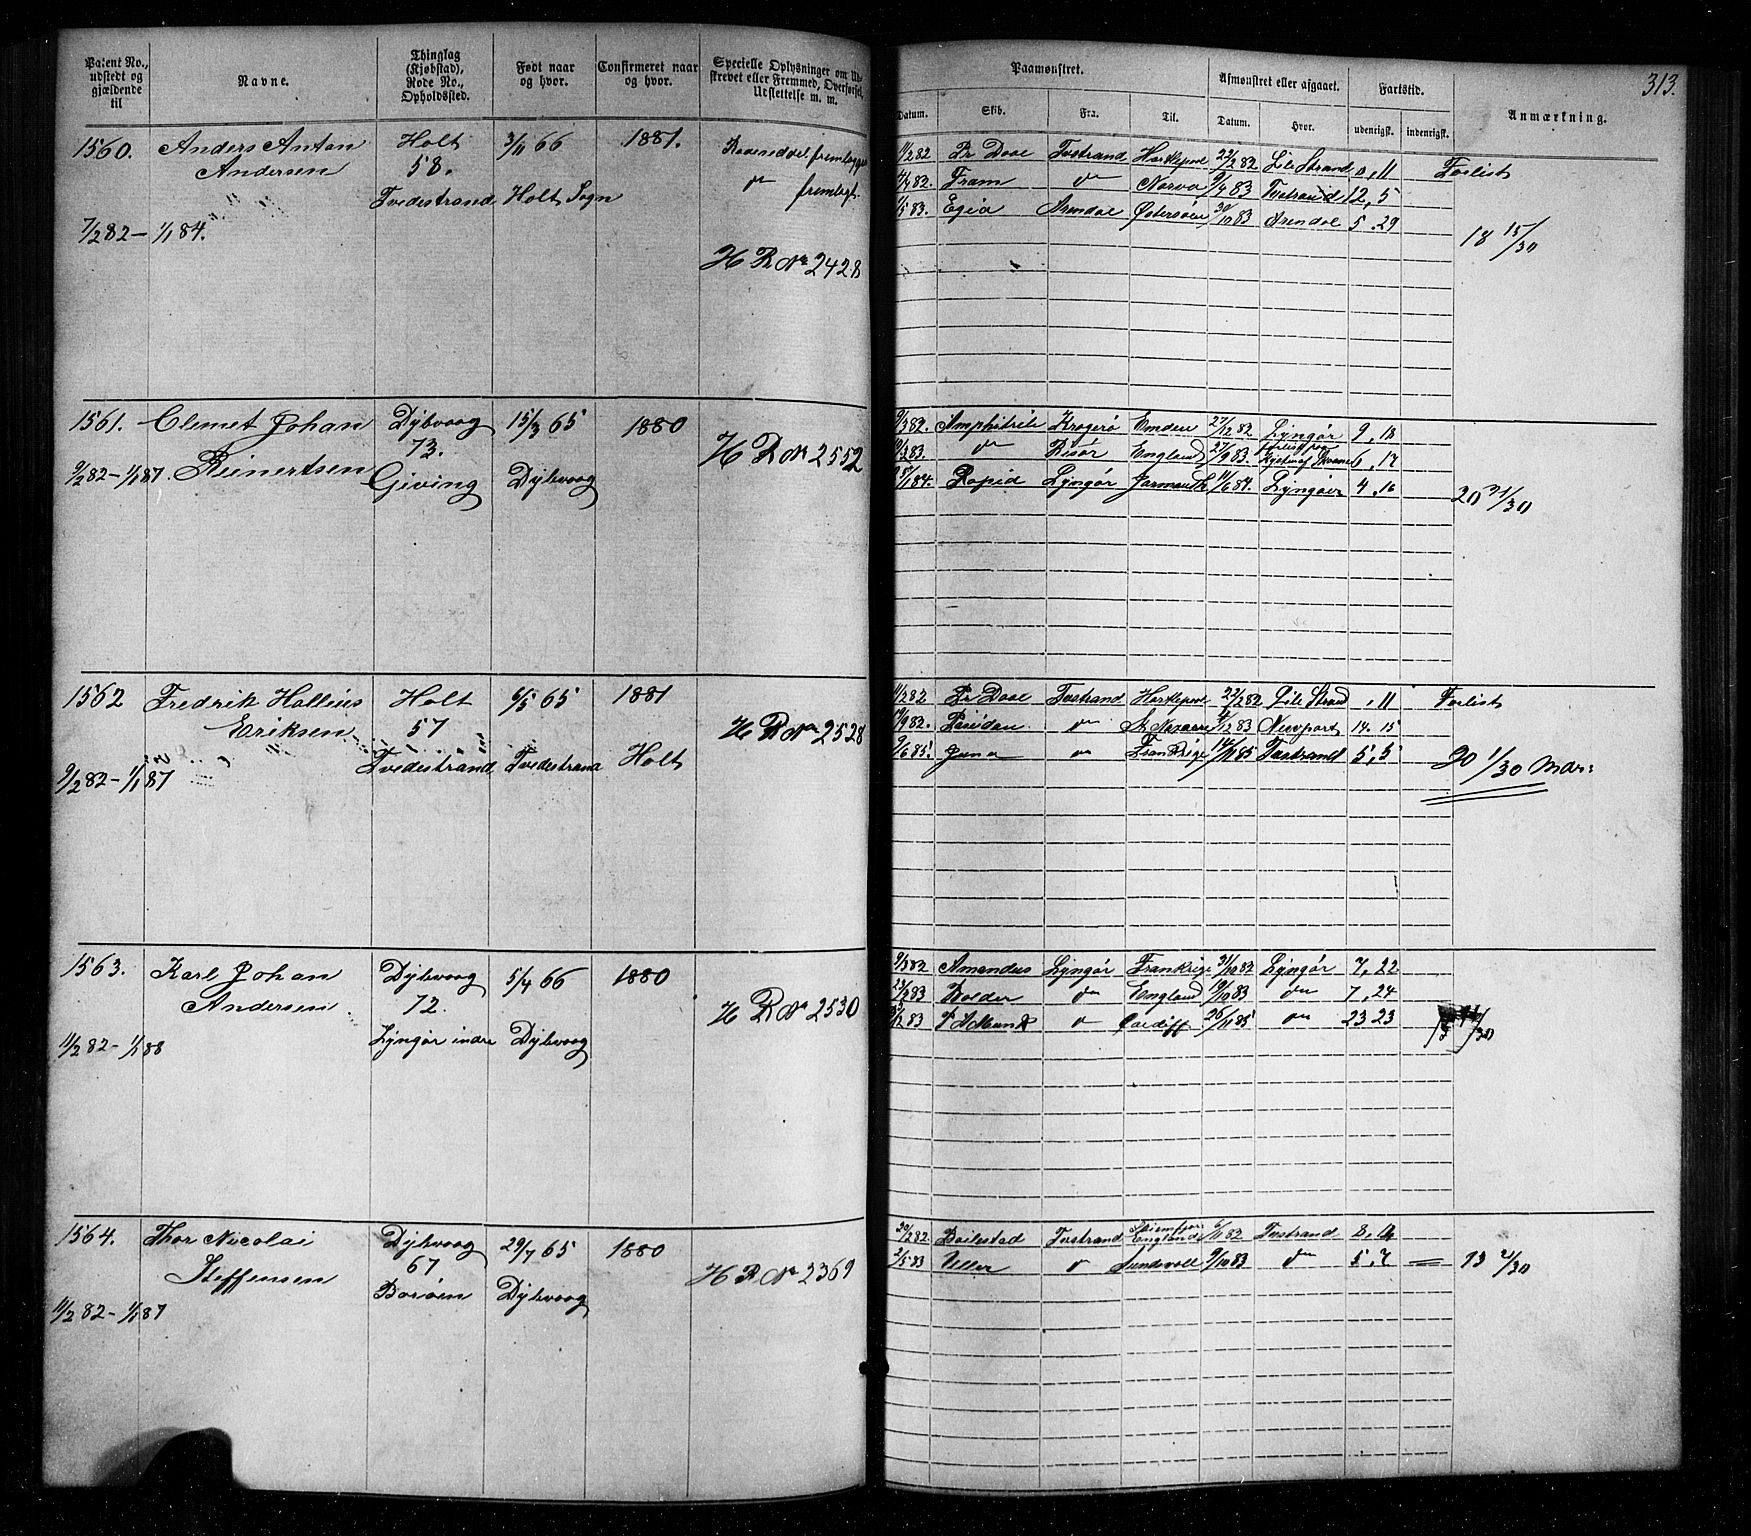 313.
Patent No., udstedt og gjældende til
Navne.
Thinglag (Kjøbstad), Rode No., Opholdssted.
Født naar og hvor.
Confirmeret naar og hvor.
Specielle Oplysninger om Ud-
skrevet eller Fremmed, Overførsel,
Udslettelse m. m.
Paamønstret.
Afmønstret eller afgaaet.
Fartstid.
Anmærkning.
Datum. Skib. Fra. Til. Datum. Hvor. udenrigsk. indenrigsk.
1560. Anders Anton Holt 3/11 66 1881.
Andersen 58. fremlægges
Tvedestrand Holt Sogn fremlagt
7/2 82 – 1/1 84.
H R No 2428
11/2 82 Pr Dooe Tvstrand Hartlepool 22/2 82 Lile Strand 0, 11 Forlist
4/4 82. Fram do Narva 9/4 83 Tvstrand 12, 5
1/5 83. Egia Arendal Østersøen 30/10 83 Arendal 5. 29
18 15/30
1561. Clemet Johan Dybvaag 15/3 65 1880
Reinertsen 73.
9/2 82 – 1/1 87. Gjeving Dybvaag
H R No 2552
9/3 82. Amphitrite Kragerø Emden 27/12 82 Lyngør 9, 18
9/3 83. do Risør England 27/9 83. 6, 17
25/1 84. Rapid Lyngør Jarmouth 11/6 84. Lyngøer 4, 16
20 21/30
1562 Fredrik Hallius Holt 6/5 65 1881
Eriksen 57
9/2 82 – 1/1 87 Tvedestrand Tvedestrand Holt
H R No 2528
11/2 82 Pr Dooe Tvstrand Hartlepool 22/2 82 Lile Strand , 11 Forlist
do St Nazaire 83 Newport 14. 15
9/6 85. Juno do Frankrige 14/11 85 Tvstrand 5, 5
20 1/30 Mdr:
1563. Karl Johan Dybvaag 5/4 66 1880
Andersen 72.
11/2 82 – 1/1 88 Lyngør indre Dybvaag
H R No 2530
9/3 82 Amandus Lyngør Frankrige 31/10 82 Lyngør 7, 22
23/2 83 Balder do England 19/10 83 do 7, 24
83 P A Munk do Cardiff 26/11 85 do 23 23
1564. Thor Nicolai Dybvaag 29/7 65 1880
Steffensen 67
11/2 82 – 1/1 87 Borøen Dybvaag
H R No 2369
20/2 82 Boilestad Tvstrand England 6/11 82 Tvstrand 8,
2/5 83 Uller do Sundsvall 9/10 83 do 5, 7 — 13 /30